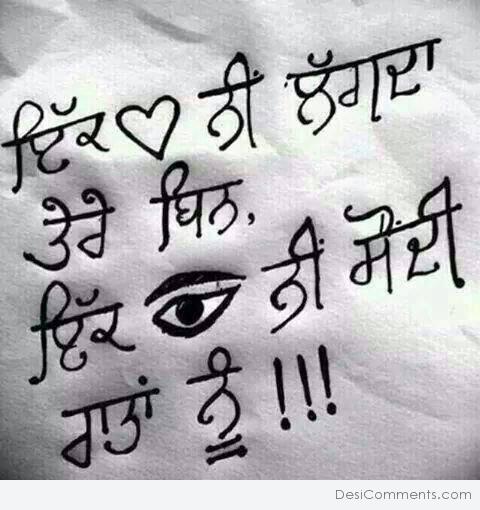 ਇੱਕ ♡ ਨੀਂ ਲੱਗਦਾ
ਤੇਰੇ ਬਿਨ,
ਇੱਕ 👁 ਨੀਂ ਸੌਂਦੀ
ਰਾਤਾਂ ਨੂੰ !!!
DesiComments.com